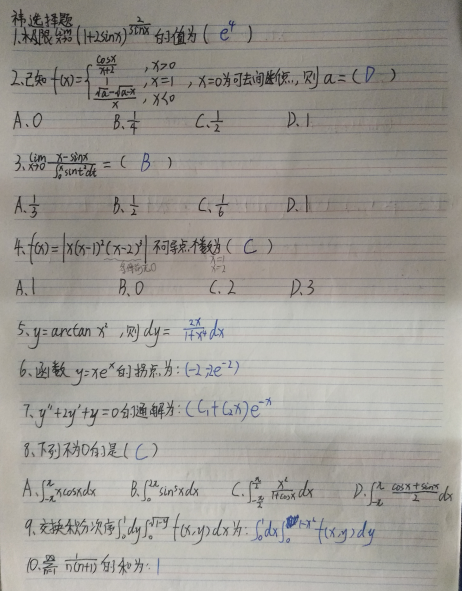 选择题
1.极限 lim x→0 (1+2sinx)^(2/sinx) 的值为( e⁴ )
2.已知 f(x)={ cosx/(x+2) , x>0
1 , x=1 , x=0为可去间断点,则 a=( D )
(√a-√(a-x))/x , x<0
A、0 B、1/4 C、1/2 D、1
3、lim x→0 (x-sinx)/∫₀ˣsint²dt = ( B )
A、1/3 B、1/2 C、1/6 D、1
4、f(x)=|x(x-1)²(x-2)³| 不可导点个数为( C )
x=1
x=2
A、1 B、0 C、2 D、3
5、y=arctan x² ,则dy= 2x/(1+x⁴) dx
6、函数 y=xeˣ的拐点为:(-2,-2e⁻²)
7、y''+2y'+y=0的通解为:(C₁+C₂x)e⁻ˣ
8、下列不为0的是( C )
A、∫ xcosxdx B、∫₀ sin³xdx C、∫ x²/(1+cosx) dx D、∫ (cosx+sinx)/2 dx
9、交换积分次序∫₀¹dy∫₀^√(1-y) f(x,y)dx为:∫₀¹dx∫₀^(1-x²) f(x,y)dy
10、∑ n=1 ∞ 1/(n(n+1)) 的和为:1